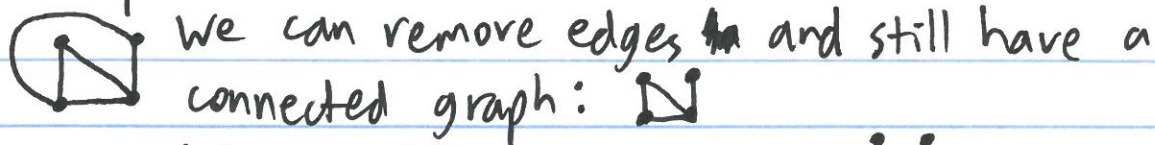 We can remove edges and still have a
connected graph: